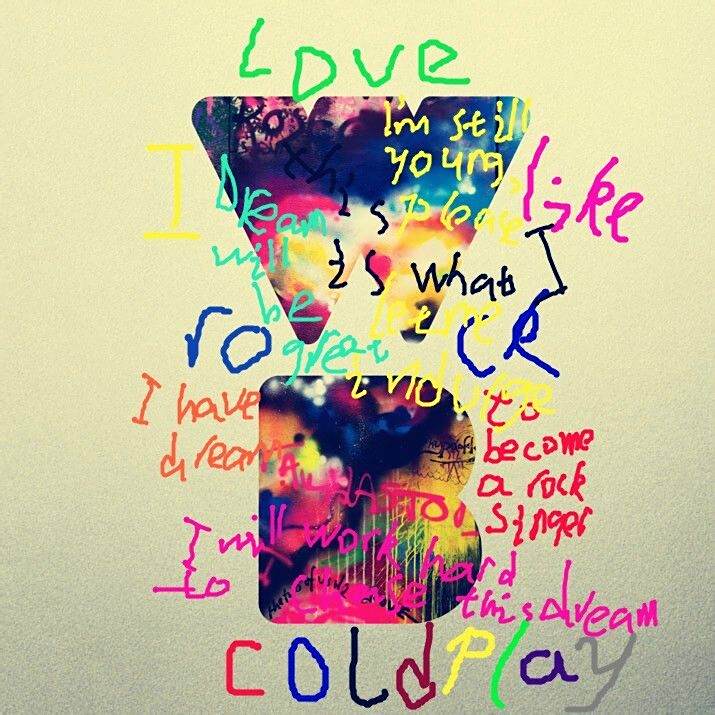 LOVE
I'm still
young,
please
let me
indulge
I
like
this
is what I
Dream
will
be
great
ro ck
I have
dream
to
become
a rock
singer
I will work hard
to
this dream
coldplay